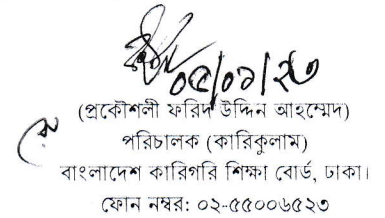 ০৫/০১/২৩
(প্রকৌশলী ফরিদ উদ্দিন আহম্মেদ)
পরিচালক (কারিকুলাম)
বাংলাদেশ কারিগরি শিক্ষা বোর্ড, ঢাকা।
ফোন নম্বর: ০২-৫৫০০৬৫২৩